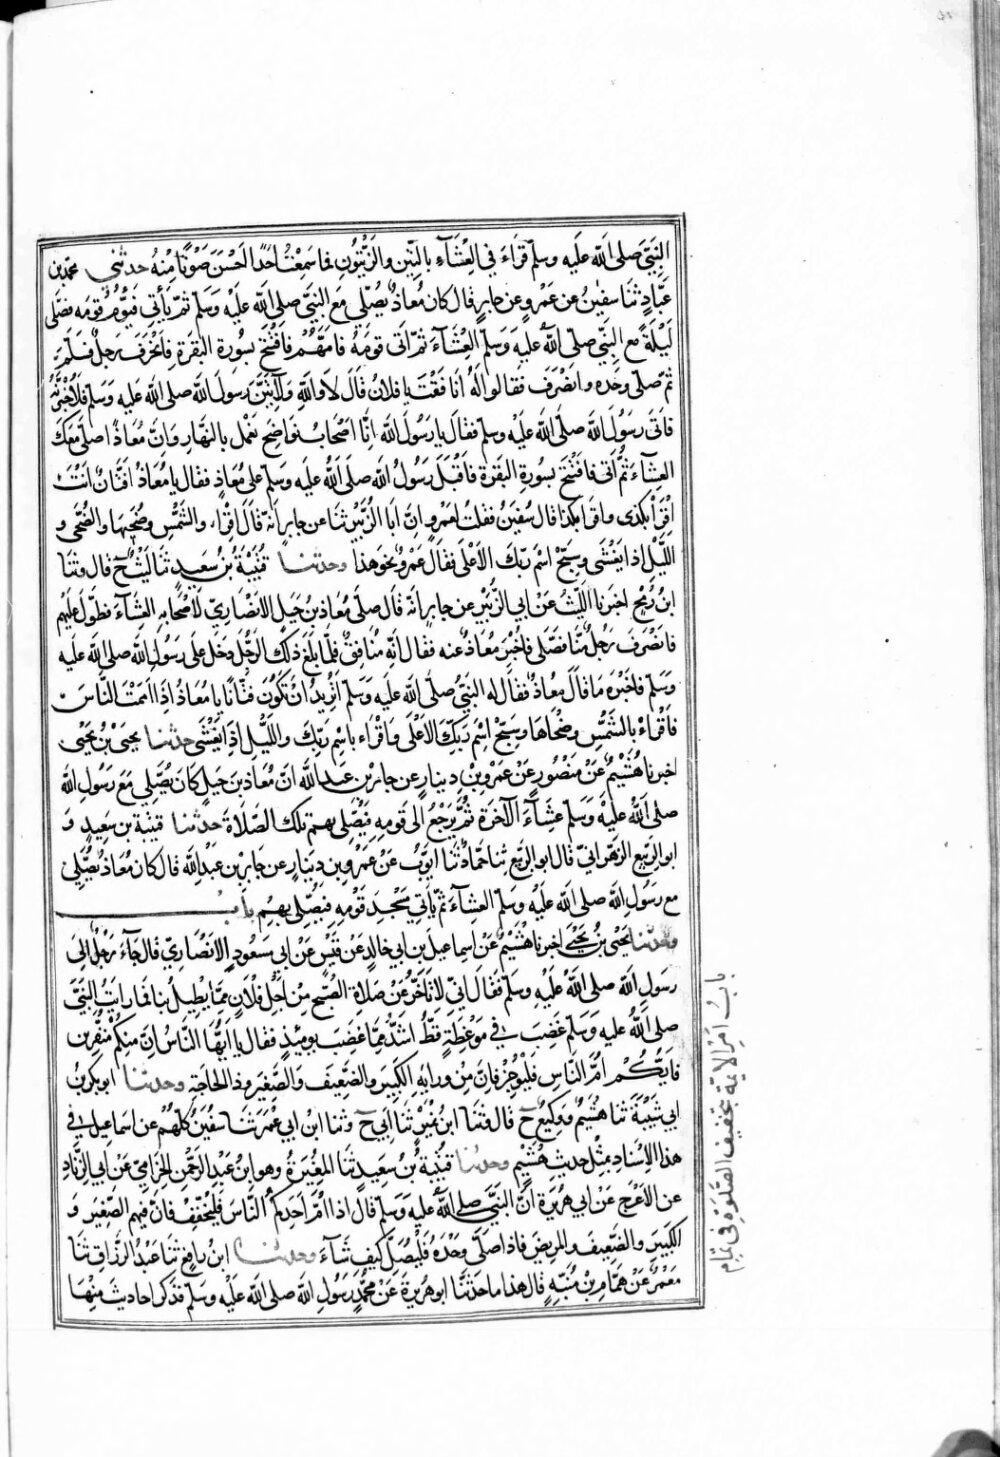 النبي صلى الله عليه وسلم قراء في العشآء بالتين والزيتون فما سمعت احدًا احسن صوتًا منه حدثني محمد بن
عبّاد ثنا سفين عن عمرو عن جابر قال كان معاذ يصلي مع النبي صلى الله عليه وسلم ثم يأتي فيؤم قومه فصلى
ليلة مع النبي صلى الله عليه وسلم العشآء ثم اتى قومه فامهم فافتتح بسورة البقرة فانحرف رجل فسلم
ثم صلى وحده وانصرف فقالوا له أنافقت يا فلان قال لا والله ولآتين رسول الله صلى الله عليه وسلم فلاخبرنه
فاتى رسول الله صلى الله عليه وسلم فقال يا رسول الله انا اصحاب نواضح نعمل بالنهار وان معاذًا صلى معك
العشآء ثم أتى فافتتح بسورة البقرة فاقبل رسول الله صلى الله عليه وسلم على معاذ فقال يا معاذ افتان انت
اقرأ بكذى واقرا بكذا قال سفين فقلت لعمرو ان ابا الزبير ثنا عن جابر انه قال اقراء والشمس وضحيها والضحى و
الليل اذا يغشى وسبح اسم ربك الاعلى فقال عمرو نحو هذا وحدثنا قتيبة بن سعيد ثنا ليث ح قال وثنا
ابن رمح اخبرنا الليث عن ابي الزبير عن جابر انه قال صلى معاذ بن جبل الانصاري لاصحابه العشآء فطول عليهم
فانصرف رجل منا فصلى فاخبر معاذ عنه فقال انه منافق فلما بلغ ذلك الرجل دخل على رسول الله صلى الله عليه
وسلم فاخبره ما قال معاذ فقال له النبي صلى الله عليه وسلم اتريد ان تكون فتانًا يا معاذ اذا اممت الناس
فاقراء بالشمس وضحاها وسبح اسم ربك الاعلى واقراء باسم ربك والليل اذا يغشى حدثنا يحيى بن يحيى
اخبرنا هشيم عن منصور عن عمرو بن دينار عن جابر بن عبد الله ان معاذ بن جبل كان يصلي مع رسول الله
صلى الله عليه وسلم عشآء الآخرة ثم يرجع الى قومه فيصلى بهم تلك الصلاة حدثنا قتيبة بن سعيد و
ابو الربيع الزهراني قال ابو الربيع ثنا حماد ثنا ايوب عن عمرو بن دينار عن جابر بن عبد الله قال كان معاذ يصلي
مع رسول الله صلى الله عليه وسلم العشآء ثم يأتي مسجد قومه فيصلى بهم باب
وحدثنا يحيى بن يحيى اخبرنا هشيم عن اسماعيل بن ابي خالد عن قيس عن ابي مسعود الانصاري قال جآء رجل الى
رسول الله صلى الله عليه وسلم فقال اني لاتاخر عن صلاة الصبح من اجل فلان مما يطيل بنا فما رايت النبي
صلى الله عليه وسلم غضب في موعظة قط اشد مما غضب يومئذ فقال يا ايها الناس ان منكم منفرين
فايكم امّ الناس فليوجز فان من ورايه الكبير والضعيف والصغير وذا الحاجة وحدثنا ابو بكر بن
ابي شيبة ثنا هشيم ووكيع ح قال وثنا ابن نمير ثنا ابي ح وثنا ابن ابي عمر ثنا سفين كلهم عن اسماعيل في
هذا الاسناد بمثل حديث هشيم وحدثنا قتيبة بن سعيد ثنا المغيرة وهو ابن عبد الرحمن الحزامي عن ابي الزناد
عن الاعرج عن ابي هريرة ان النبي صلى الله عليه وسلم قال اذا امّ احدكم الناس فليخفف فان فيهم الصغير و
الكبير والضعيف والمريض فاذا صلى وحده فليصل كيف شآء وحدثنا ابن رافع ثنا عبد الرزاق ثنا
معمر عن همام بن منبه قال هذا ما حدثنا ابو هريرة عن محمد رسول الله صلى الله عليه وسلم فذكر احاديث منها
باب امر الايمة بتخفيف الصلوة في تمام